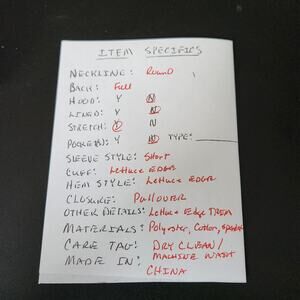 ITEM SPECIFICS
NECKLINE: Round
BACK: Full
HOOD: Y N
LINED: Y N
STRETCH: Y N
POCKET(S): Y N TYPE:
SLEEVE STYLE: Short
CUFF: Lettuce EDGE
HEM STYLE: Lettuce EDGE
CLOSURE: PullOVER
OTHER DETAILS: Lettuce Edge TRIM
MATERIALS: Polyester, Cotton,
CARE TAG: DRY CLEAN/
MACHINE WASH
MADE IN: CHINA